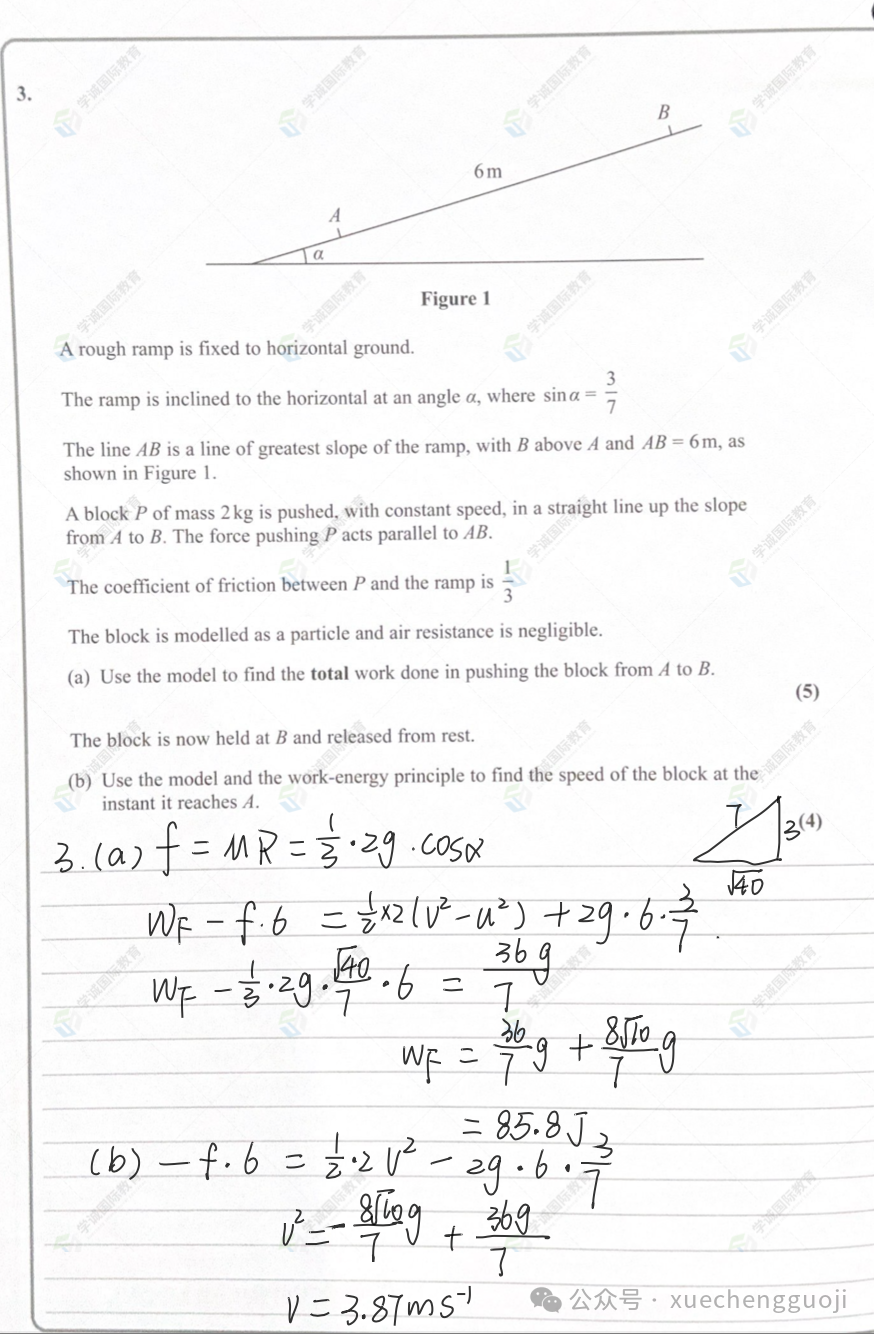 3.
B
6 m
A
α
Figure 1
A rough ramp is fixed to horizontal ground.
The ramp is inclined to the horizontal at an angle α, where sin α = 3/7
The line AB is a line of greatest slope of the ramp, with B above A and AB = 6 m, as
shown in Figure 1.
A block P of mass 2 kg is pushed, with constant speed, in a straight line up the slope
from A to B. The force pushing P acts parallel to AB.
The coefficient of friction between P and the ramp is 1/3
The block is modelled as a particle and air resistance is negligible.
(a) Use the model to find the total work done in pushing the block from A to B.
(5)
The block is now held at B and released from rest.
(b) Use the model and the work-energy principle to find the speed of the block at the
instant it reaches A.
(4)
7
3
√40
3.(a) f = μR = 1/3 · 2g · cosα
W_F - f·6 = 1/2 × 2(v² - u²) + 2g · 6 · 3/7
W_F - 1/3 · 2g · √40/7 · 6 = 36g/7
W_F = 36/7 g + 8√10/7 g
= 85.8 J
(b) - f·6 = 1/2 · 2 v² - 2g · 6 · 3/7
v² = - 8√10g/7 + 36g/7
v = 3.87 ms⁻¹
学诚国际教育
公众号 · xuechengguoji